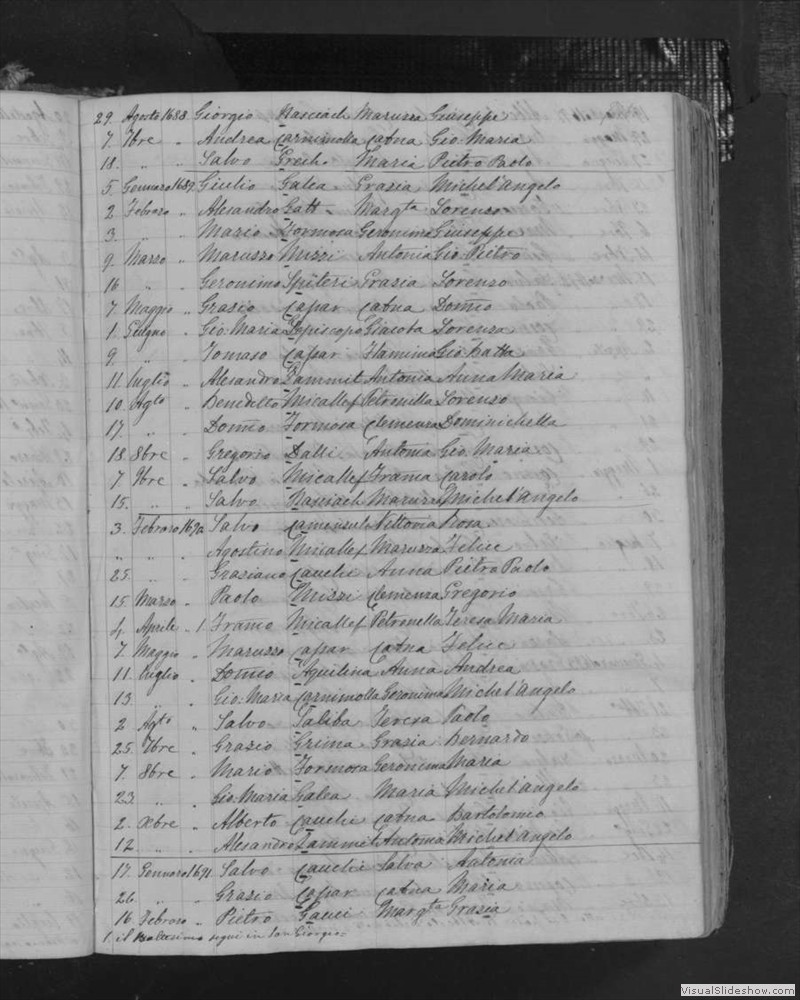 29. Agosto 1688 Giorgio Maruzza Giuseppe
7. 7bre " Andrea Carnimolla Catna Gio. Maria
18. " " Salvo Grech Maria Pietro Paolo
5. Gennaro 1689. Giulio Galea Grazia Michel'angelo
2 Febraro " Alesandro Zatt Margta Lorenzo
3. " " Mario Formosa Geronima Giuseppe
9. Marzo " Maruzzo Mizzi Antonia Gio. Pietro
16 " " Geronimo Spiteri Grazia Lorenzo
7. Maggio " Grazio Capar Catna Domco
1. Giugno " Gio: Maria Lepiscopo Giacoba Lorenza
9 " " Tomaso Capar Flaminia Gio: Batta
11. Luglio " Alesandro Zammit Antonia Anna Maria
10. Agto " Benedetto Micallef Petronilla Lorenzo
17. " " Domco Formosa Clemenza Dominichella
18. 8bre " Gregorio Dalli Antonia Gio. Maria
7 9bre " Salvo Micallef Franca Carolo
15. " " Salvo Maruzza Michel'angelo
3. Febraro 1690 Salvo Camensuli Vittoria Rosa
" " " Agostino Micallef Maruzza Felice
25. " " Graziano Cauchi Anna Pietro Paolo
15. Marzo " Paolo Mizzi Clemenza Gregorio
4. Aprile " 1. Franco Micallef Petronella Teresa Maria
7. Maggio " Maruzzo Capar Catna Felice
11. Luglio " Domco Aquilina Anna Andrea
13. " " Gio: Maria Carnimolla Geronima Michel'angelo
2 Agto " Salvo Saliba Tereza Paolo
25. 7bre " Grazio Grima Grazia Bernardo
7. 8bre " Mario Formosa Geronima Maria
23. " " Gio: Maria Galea Maria Michel'angelo
2. Xbre " Alberto Cauchi Catna Bartolomeo
12. " " Alesandro Zammit Antonia Michel'angelo
17. Gennaro 1691. Salvo Cauchi Salva Antonia
26. " " Grazio Capar Catna Maria
16 Febraro " Pietro Gauci Margta Grazia
1. il Battesimo segui in San Giorgio
VisualSlideshow.com